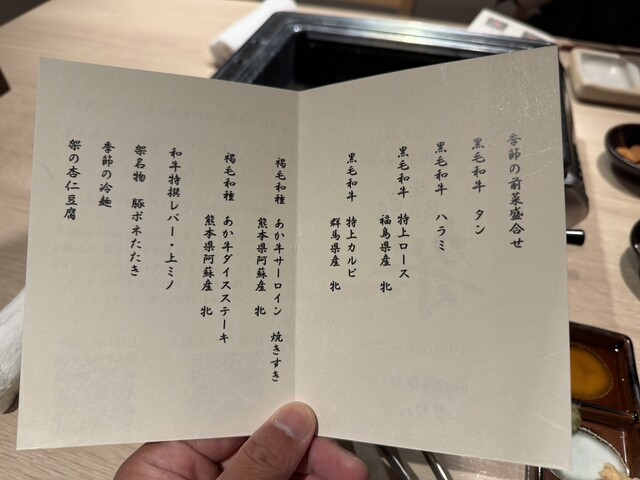 季節の前菜盛合せ
黒毛和牛 タン
黒毛和牛 ハラミ
黒毛和牛 特上ロース
福島県産 牝
黒毛和牛 特上カルビ
群馬県産 牝
褐毛和種 あか牛サーロイン 焼きすき
熊本県阿蘇産 牝
褐毛和種 あか牛ダイスステーキ
熊本県阿蘇産 牝
和牛特撰レバー・上ミノ
架名物 豚ボネたたき
季節の冷麺
架の杏仁豆腐